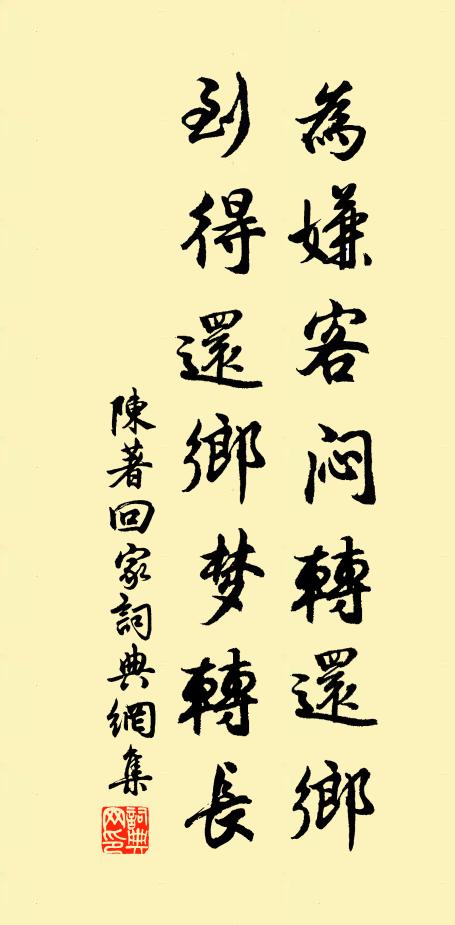 為嫌客闷轉還鄉
到得還鄉梦轉長
陳著回家詞典網集
詞典网印